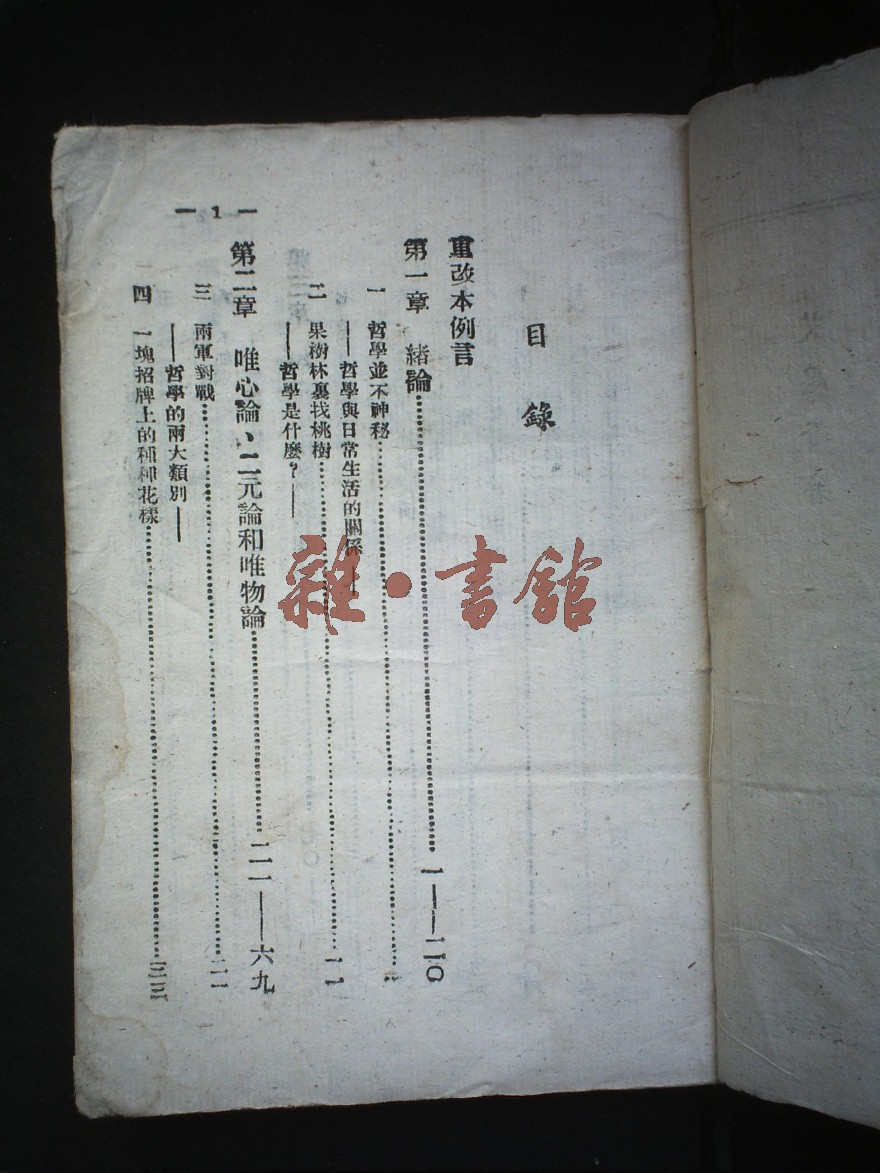 目錄
重改本例言
第一章 緒論……………一——二〇
一 哲學並不神秘……………
——哲學與日常生活的關係——
二 果樹林裏找桃樹……………一一
——哲學是什麼？——
第二章 唯心論、二元論和唯物論……………二一——六九
三 兩軍對戰……………二一
——哲學的兩大類別——
四 一塊招牌上的種種花樣……………三三
— 1 —
雜·書館